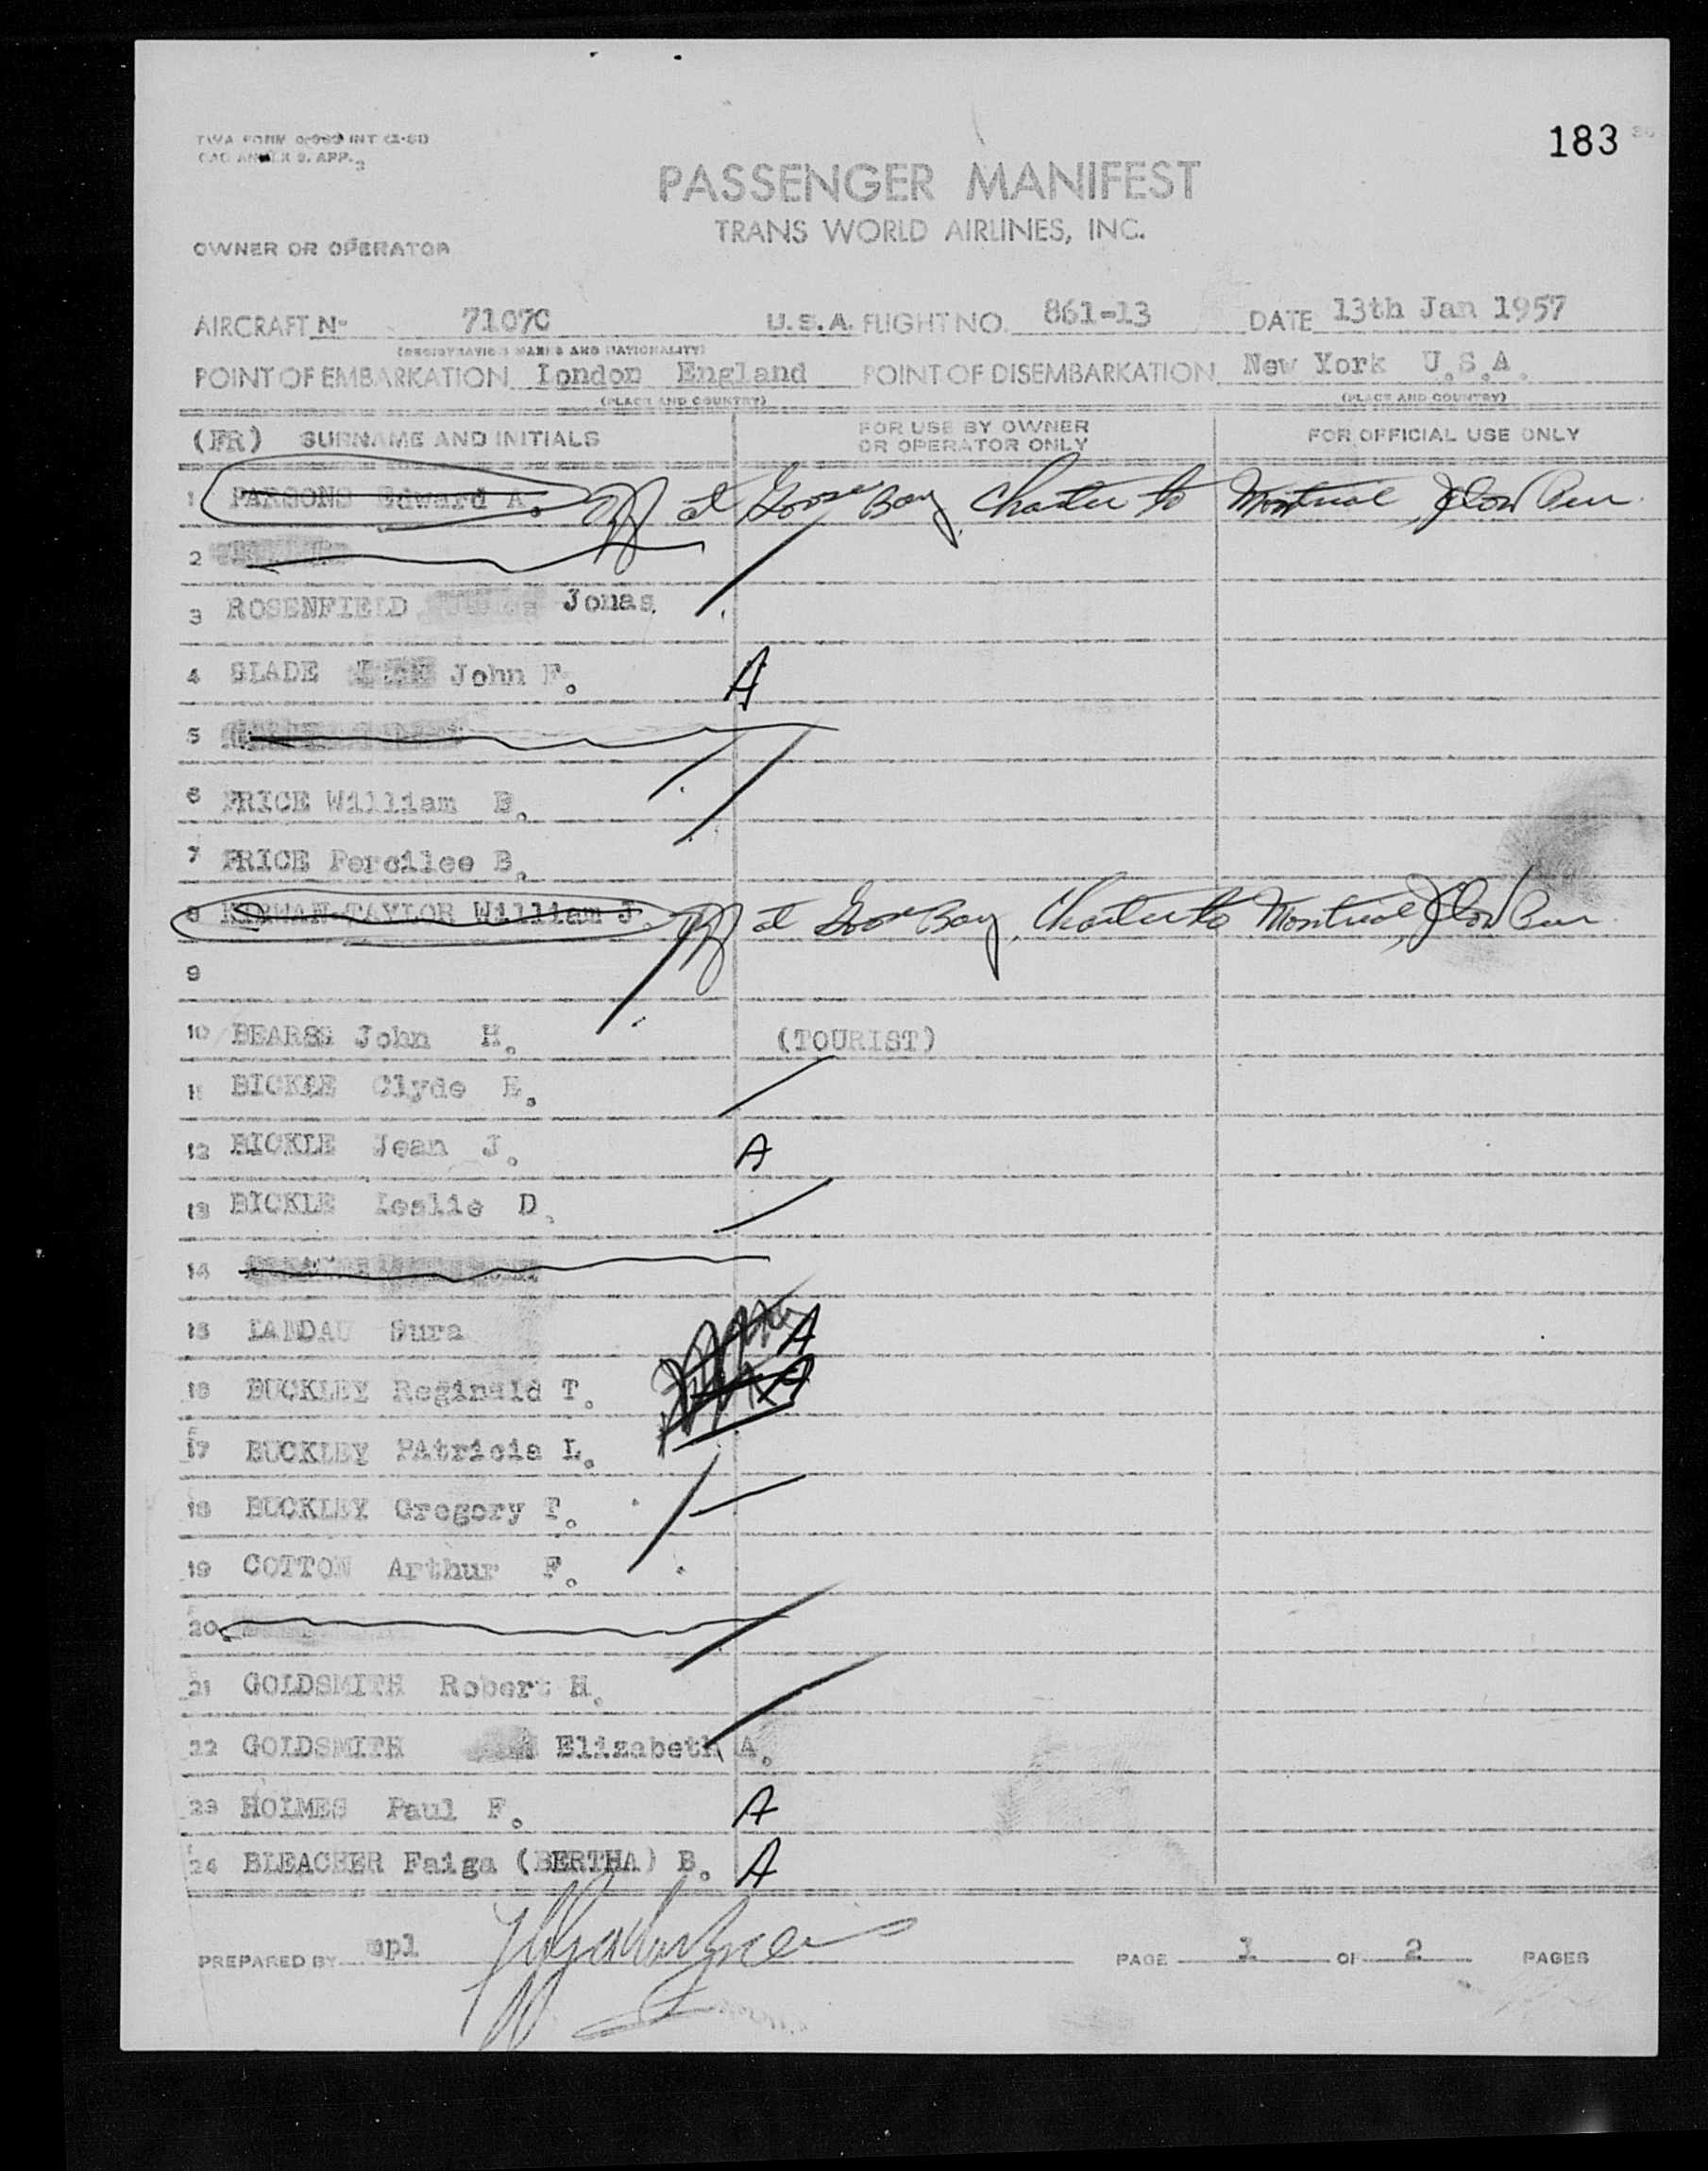 183
TWA FORM INT
PASSENGER MANIFEST
TRANS WORLD AIRLINES, INC.
OWNER OR OPERATOR
AIRCRAFT N- 7107C U.S.A. FLIGHT NO. 861-13 DATE 13th Jan 1957
(REGISTRATION MARKS AND NATIONALITY)
POINT OF EMBARKATION London England POINT OF DISEMBARKATION New York U.S.A.
(PLACE AND COUNTRY) (PLACE AND COUNTRY)
(FR) SURNAME AND INITIALS FOR USE BY OWNER OR OPERATOR ONLY FOR OFFICIAL USE ONLY
1 PARSONS Edward A. Off at Goose Bay, Charter to Montreal,
2
3 ROSENFIELD Jonas
4 SLADE John F. A
5
6 PRICE William B.
7 PRICE Percilee B.
8 KIRWAN-TAYLOR William J. Off at Goose Bay, Charter to Montreal,
9
10 BEARSS John H. (TOURIST)
11 BICKLE Clyde E.
12 BICKLE Jean J. A
13 BICKLE Leslie D.
14
15 LANDAU Sura A
16 BUCKLEY Reginald T.
17 BUCKLEY PAtricia L.
18 BUCKLEY Gregory T.
19 COTTON Arthur F.
20
21 GOLDSMITH Robert H.
22 GOLDSMITH Elizabeth A.
23 HOLMES Paul F. A
24 BLEACHER Faiga (BERTHA) B. A
PREPARED BY mpl PAGE 1 OF 2 PAGES